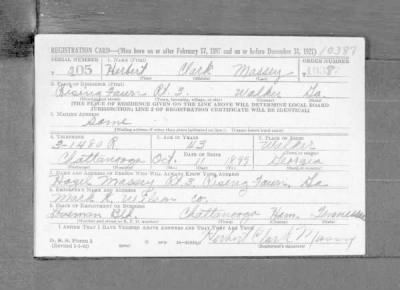 REGISTRATION CARD—(Men born on or after February 17, 1897 and on or before December 31, 1921) 10387
SERIAL NUMBER 1. NAME (Print) ORDER NUMBER
405 Herbert Clark Massey
(First) (Middle) (Last)
2. PLACE OF RESIDENCE (Print)
Rising Fawn Rt 3. Walker Ga.
(Town, township, village, or city) (County) (State)
[THE PLACE OF RESIDENCE GIVEN ON THE LINE ABOVE WILL DETERMINE LOCAL BOARD
JURISDICTION; LINE 2 OF REGISTRATION CERTIFICATE WILL BE IDENTICAL]
3. MAILING ADDRESS
Same
[Mailing address if other than place indicated on line 2. If same insert word same]
4. TELEPHONE 5. AGE IN YEARS 6. PLACE OF BIRTH
3-1480 R 43 Walker
DATE OF BIRTH (Town or county)
Chattanooga Oct. 11 1899 Georgia
(Exchange) (Number) (Mo.) (Day) (Yr.) (State or country)
7. NAME AND ADDRESS OF PERSON WHO WILL ALWAYS KNOW YOUR ADDRESS
Massey Rt 3, Rising Fawn, Ga
8. EMPLOYER'S NAME AND ADDRESS
Mark K. Wilson Co.
9. PLACE OF EMPLOYMENT OR BUSINESS
Bld. Chattanooga Ham. Tennessee
(Number and street or R. F. D. number) (Town) (County) (State)
I AFFIRM THAT I HAVE VERIFIED ABOVE ANSWERS AND THAT THEY ARE TRUE.
D. S. S. Form 1
(Revised 1-1-42) (over) Herbert Clark Massey
(Registrant's signature)